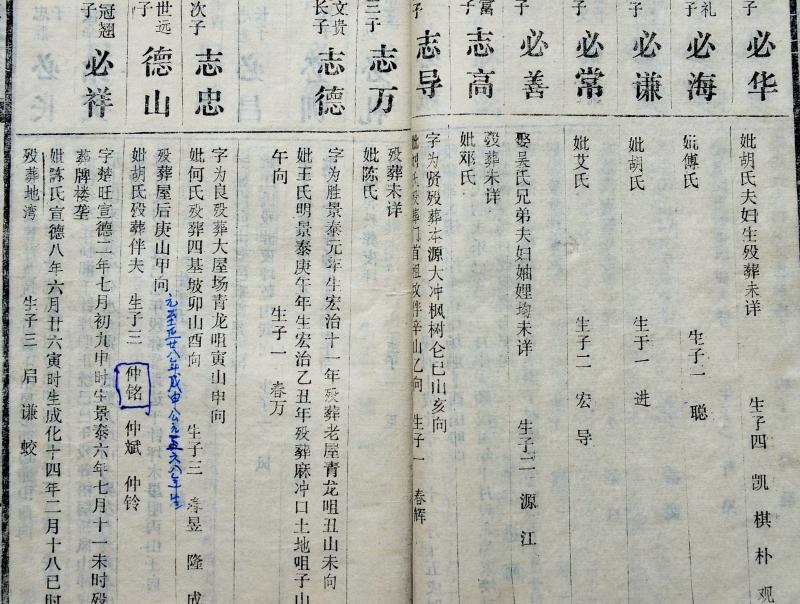 必华
妣胡氏夫妇生殁葬未详
生子四 凯 棋 朴 观
礼
子
必海
妣傅氏
生子二 聪
子
必谦
妣胡氏
生子一 进
子
必常
妣艾氏
生子二 宏 导
子
必善
娶吴氏兄弟夫妇妯娌均未详
生子二 源 江
富
子
志高
殁葬未详
妣邓氏
子
志导
字为贤殁葬本源大冲枫树仑巳山亥向
辛山乙向 生子一 春辉
三子
志万
殁葬未详
妣陈氏
文贵
长子
志德
字为胜景泰元年生宏治十一年殁葬老屋青龙咀丑山未向
妣王氏明景泰庚午年生宏治乙丑年殁葬麻冲口土地咀子山
午向
生子一 春万
次子
志忠
字为良殁葬大屋场青龙咀寅山申向
妣何氏殁葬四基坡卯山酉向
生子三 昱 隆 成
世远
子
德山
殁葬屋后庚山甲向
妣胡氏殁葬伴夫 生子三 仲铭 仲斌 仲铃
元至正廿八年戊申公元一三六八年生
冠翘
子
必祥
字楚旺宣德二年七月初九申时生景泰六年七月十一未时殁
葬牌楼垄
妣陈氏宣德八年六月廿六寅时生成化十四年二月十八巳时
殁葬地湾 生子三 启 谦 蛟